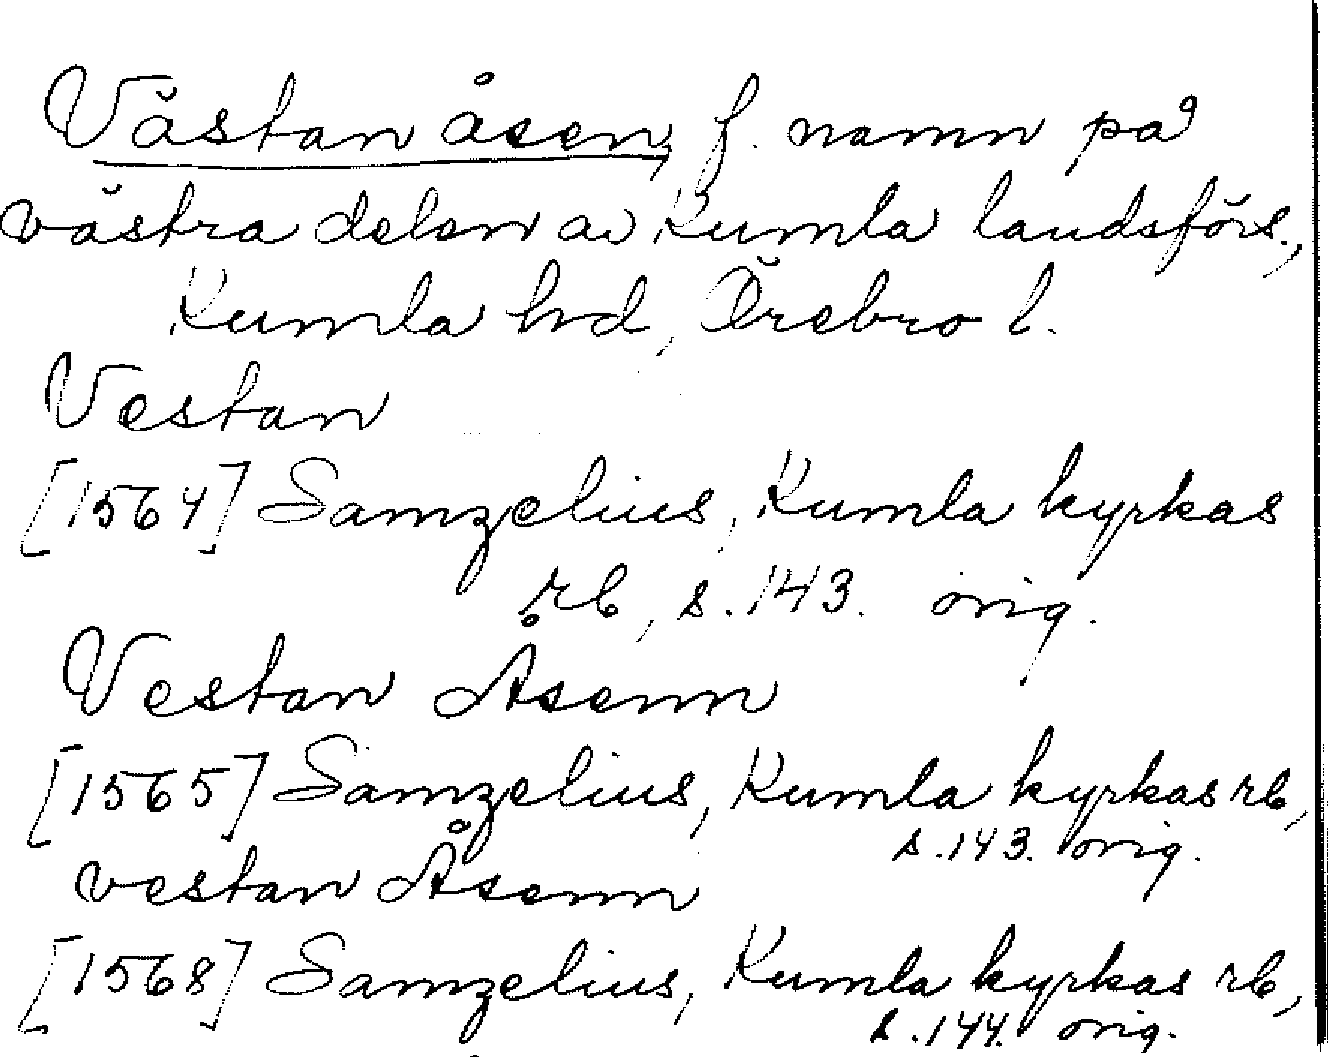 Västan åsen, f. namn på
västra delen av Kumla landsförs.,
Kumla hd, Örebro l.
Vestan
[1564] Samzelius, Kumla kyrkas
rb, s. 143. orig.
Vestan Åsenn
[1565] Samzelius, Kumla kyrkas rb,
s. 143. orig.
vestan Åsenn
[1568] Samzelius, Kumla kyrkas rb,
s. 144. orig.